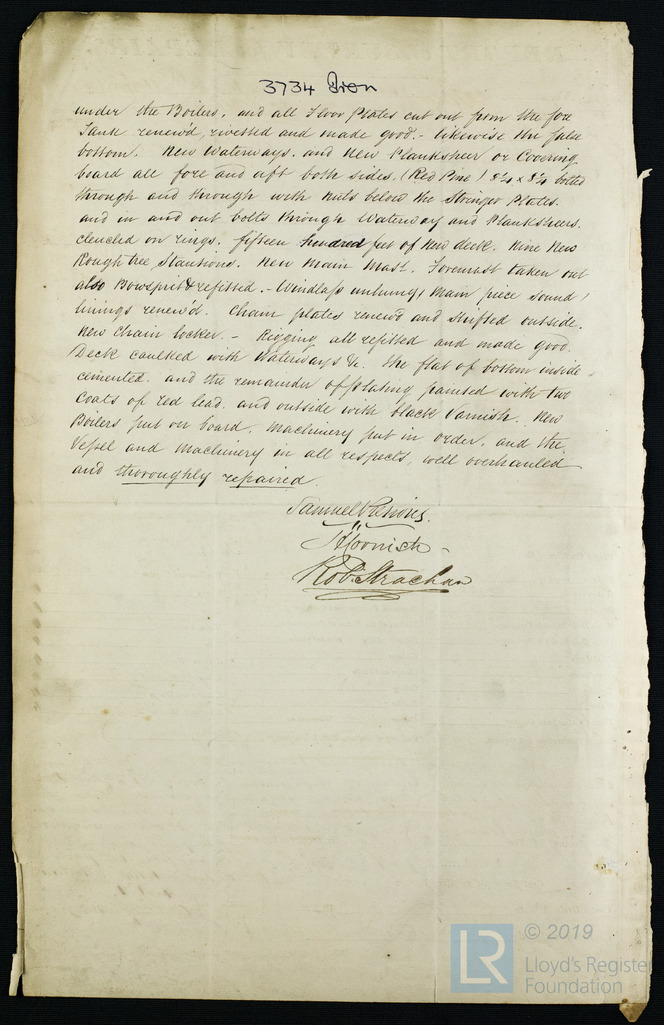 3734 Iron
under the Boilers, and all Floor Plates cut out from the fore
Tank renew'd, rivetted and made good. - likewise the false
bottom. New Waterways. and New Planksheer or Covering
board all fore and aft both sides. (Red Pine) 8¼ x 8¼ bolted
through and through with nuts below the Stringer Plates.
and in and out bolts through Waterway and Planksheers.
clenched on rings. fifteen hundred feet of New deck. Nine New
Roughtree Stantions. New Main Mast. Foremast taken out
also Bowsprit & refitted. - Windlass unhung, main piece sound,
linings renew'd. Chain plates renew'd and shifted outside.
New Chain locker. - Rigging all refitted and made good.
Deck caulked with Waterways &c. the flat of bottom inside
cemented. and the remainder of plating painted with two
Coats of red lead. and outside with black Varnish. New
Boilers put on board. Machinery put in order. and the
Vessel and Machinery in all respects, well overhauled
and thoroughly repaired.
Samuel
Robt. Strachan
© 2019
LR
Lloyd's Register
Foundation